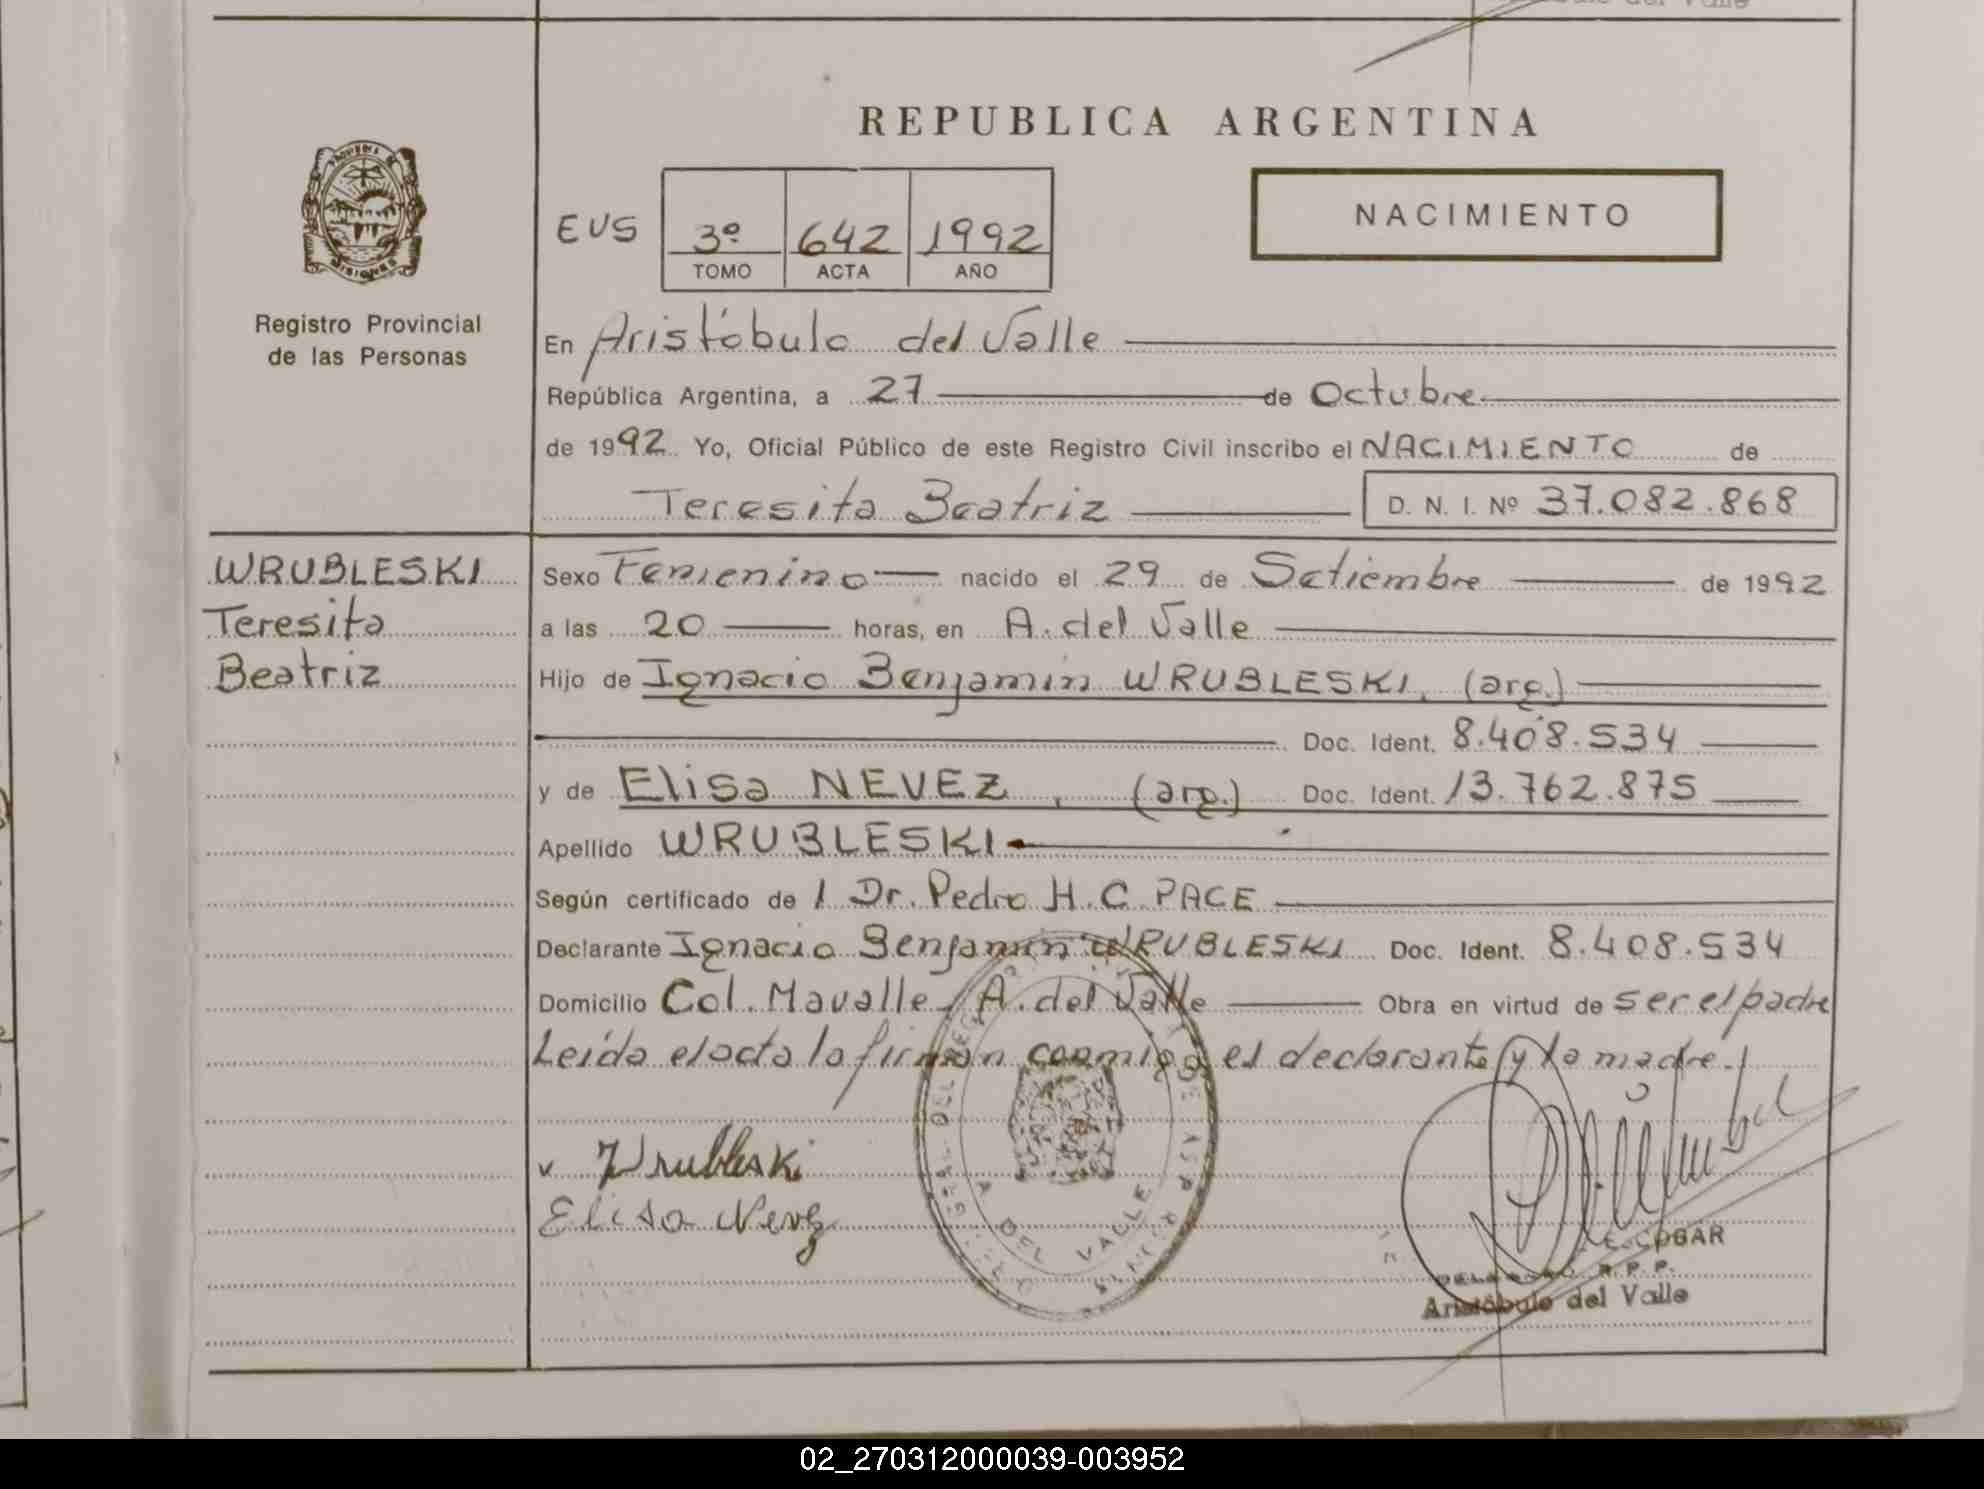 REPUBLICA ARGENTINA
NACIMIENTO
EUS 3º 642 1992
TOMO ACTA AÑO
Registro Provincial
de las Personas
En Aristóbulo del Valle
República Argentina, a 27 de Octubre
de 1992 Yo, Oficial Público de este Registro Civil inscribo el NACIMIENTO de
Teresita Beatriz D. N. I. Nº 37.082.868
WRUBLESKI
Teresita
Beatriz
Sexo Femenino nacido el 29 de Setiembre de 1992
a las 20 horas, en A. del Valle
Hijo de Ignacio Benjamín WRUBLESKI, (arg.)
Doc. Ident. 8.408.534
y de Elisa NEVEZ, (arg.) Doc. Ident. 13.762.875
Apellido WRUBLESKI
Según certificado de l Dr. Pedro H. C. PACE
Declarante Ignacio Benjamín WRUBLESKI Doc. Ident. 8.408.534
Domicilio Col. Mavalle, A. del Valle Obra en virtud de ser el padre
Leída el acta la firman conmigo el declarante y la madre.
v Wrubleski
Elisa Nevez
A DEL VALLE
ESCOBAR
R. P. P.
Aristóbulo del Valle
02_270312000039-003952